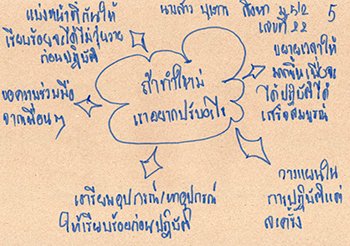 แบ่งหน้าที่กันให้
เรียบร้อยจะได้ไม่วุ่นวาย
ก่อนปฏิบัติ
นางสาว
เลขที่ 22
5
ขยายเวลาให้
มากขึ้นเพื่อจะ
ได้ปฏิบัติได้
เสร็จสมบูรณ์
ขอความร่วมมือ
จากเพื่อนๆ
ถ้าทำใหม่
เราอยากปรับอะไร
วางแผนใน
การปฏิบัติแต่
ละครั้ง
เตรียมอุปกรณ์/หาอุปกรณ์
ให้เรียบร้อยก่อนปฏิบัติ